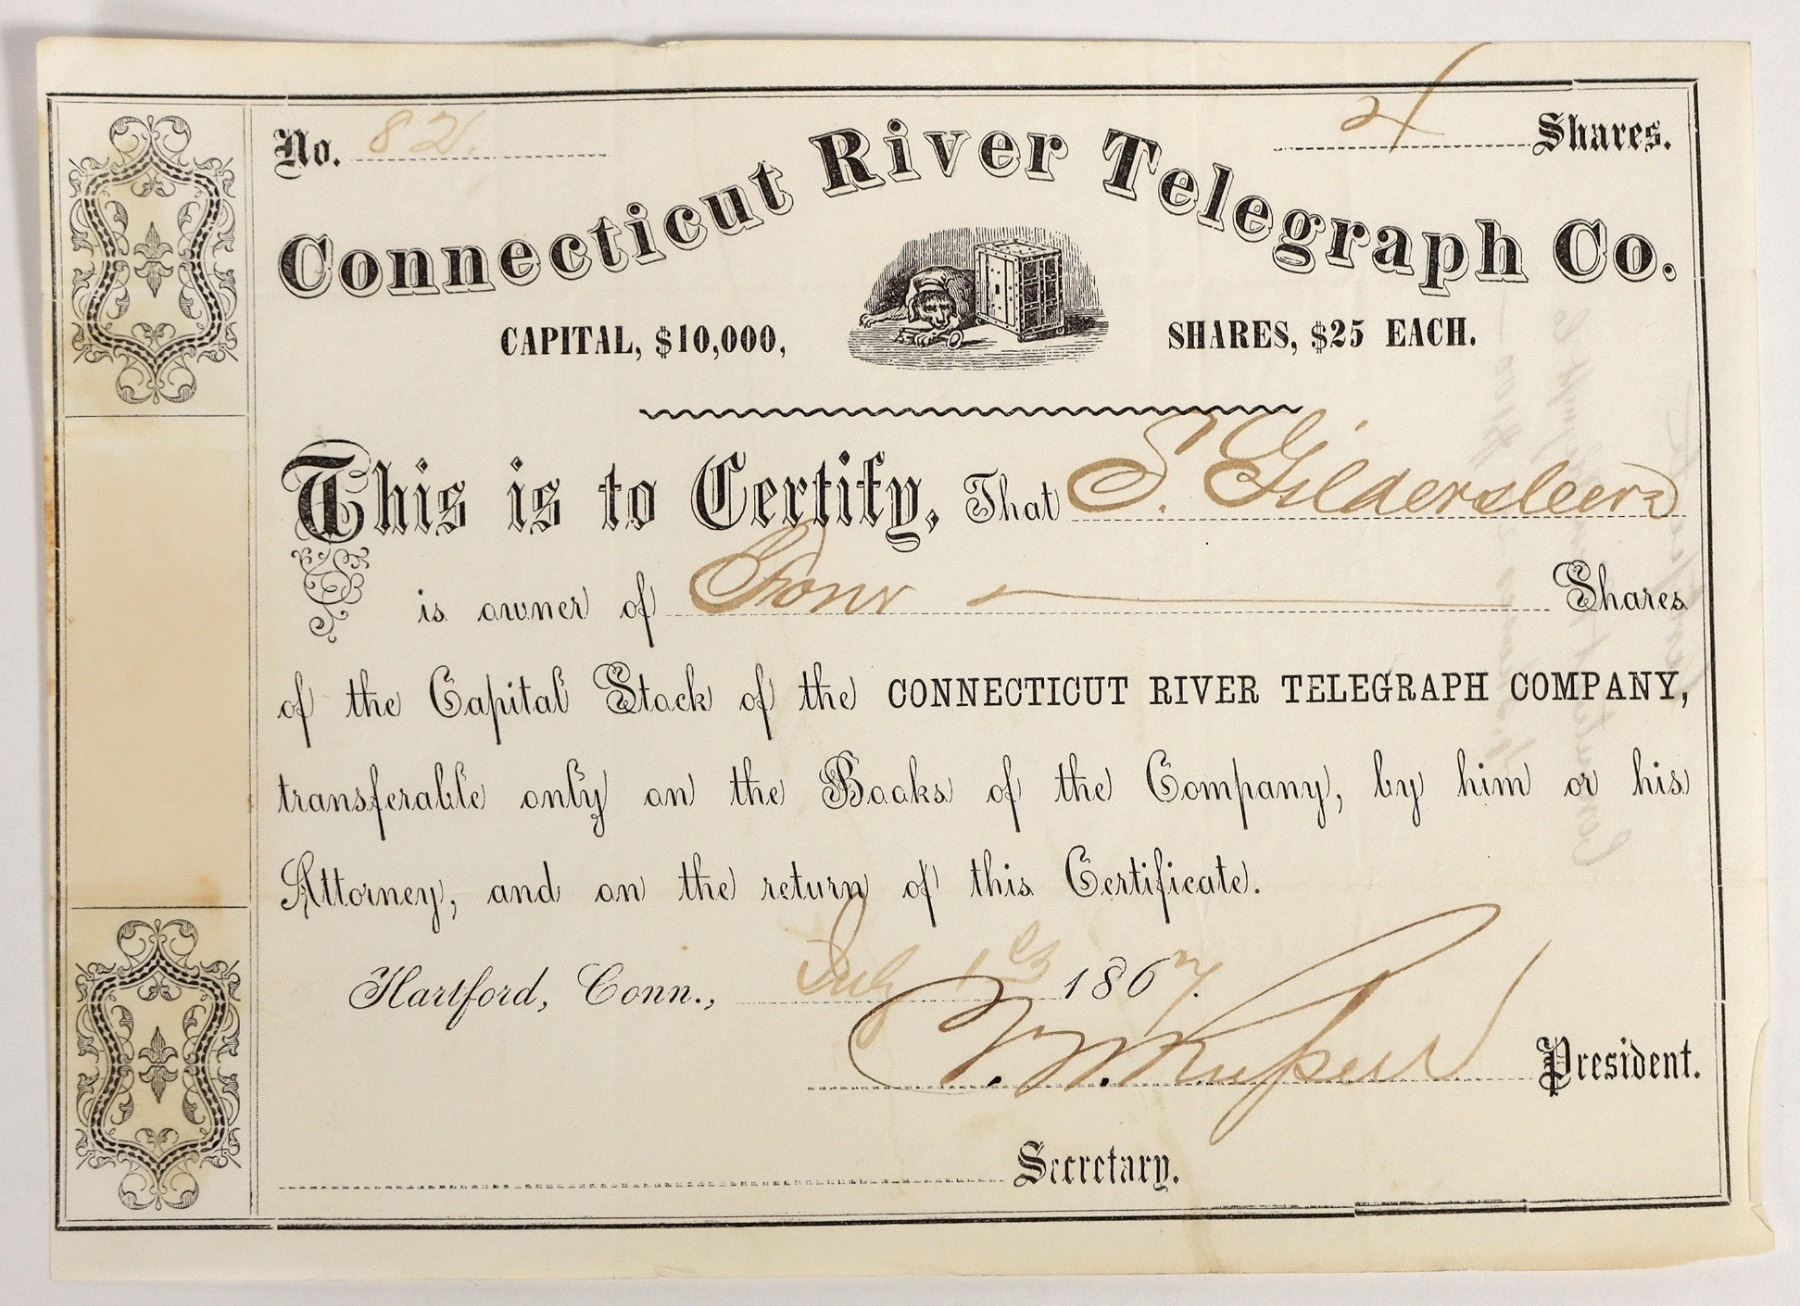 No. 82. 4 Shares.
Connecticut River Telegraph Co.
CAPITAL, $10,000, SHARES, $25 EACH.
This is to Certify, That S. Gildersleeve
is owner of Four Shares
of the Capital Stock of the CONNECTICUT RIVER TELEGRAPH COMPANY,
transferable only on the Books of the Company, by him or his
Attorney, and on the return of this Certificate.
Hartford, Conn., July 1st 1867.
President.
Secretary.